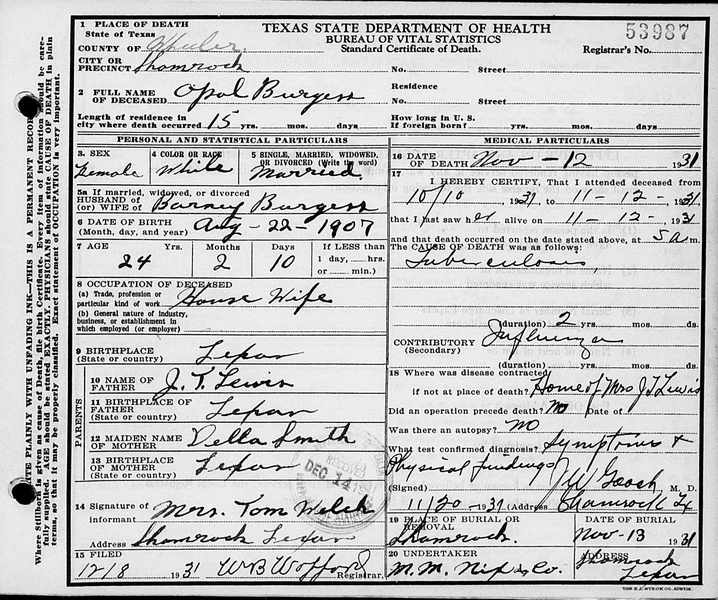 TEXAS STATE DEPARTMENT OF HEALTH
BUREAU OF VITAL STATISTICS
Standard Certificate of Death.
53987
Registrar's No.
1 PLACE OF DEATH
State of Texas
COUNTY OF Wheeler
CITY OR PRECINCT Shamrock No. Street
2 FULL NAME OF DECEASED Opal Burgess Residence No. Street
Length of residence in city where death occurred 15 yrs. mos. days. How long in U. S. If foreign born? yrs. mos. days.
PERSONAL AND STATISTICAL PARTICULARS
3. SEX Female
4 COLOR OR RACE White
5 SINGLE, MARRIED, WIDOWED, OR DIVORCED (Write the word) Married.
5a If married, widowed, or divorced
HUSBAND OF (or) WIFE OF Barney Burgess
6 DATE OF BIRTH (Month, day, and year) Aug-22-1907
7 AGE 24 Yrs. 2 Months 10 Days If LESS than 1 day, hrs. or min.)
8 OCCUPATION OF DECEASED
(a) Trade, profession or particular kind of work House Wife
(b) General nature of industry, business, or establishment in which employed (or employer)
9 BIRTHPLACE (State or country) Texas
PARENTS
10 NAME OF FATHER J. T. Lewis
11 BIRTHPLACE OF FATHER (State or country) Texas
12 MAIDEN NAME OF MOTHER Della Smith
13 BIRTHPLACE OF MOTHER (State or country) Texas
DEC 14
14 Signature of informant Mrs. Tom Welch
Address Shamrock Texas
15 FILED 12/8 1931 W B Wofford Registrar.
MEDICAL PARTICULARS
16 DATE OF DEATH Nov-12 1931
17 I HEREBY CERTIFY, That I attended deceased from
10/10 1931 to 11-12-1931
that I last saw her alive on 11-12-1931
and that death occurred on the date stated above, at 5 a m.
The CAUSE OF DEATH was as follows:
Tuberculosis,
(duration) 2 yrs. mos. ds.
CONTRIBUTORY (Secondary) Influenza
(duration) yrs. mos. ds.
18 Where was disease contracted if not at place of death? Home of Mrs J T Lewis
Did an operation precede death? no Date of
Was there an autopsy? no
What test confirmed diagnosis? Symptoms &
Physical findings
(Signed) J W Gooch M. D.
11/20-1931 Shamrock Tx
19 PLACE OF BURIAL OR REMOVAL Shamrock.
DATE OF BURIAL Nov-13 1931
20 UNDERTAKER M. M. Nix & Co.
ADDRESS Shamrock Texas
WRITE PLAINLY WITH UNFADING INK—THIS IS A PERMANENT RECORD
Where Stillborn is given as cause of Death, file birth Certificate. Every item of information should be carefully supplied. AGE should be stated EXACTLY. PHYSICIANS should state CAUSE OF DEATH in plain terms, so that it may be properly classified. Exact statement of OCCUPATION is very important.